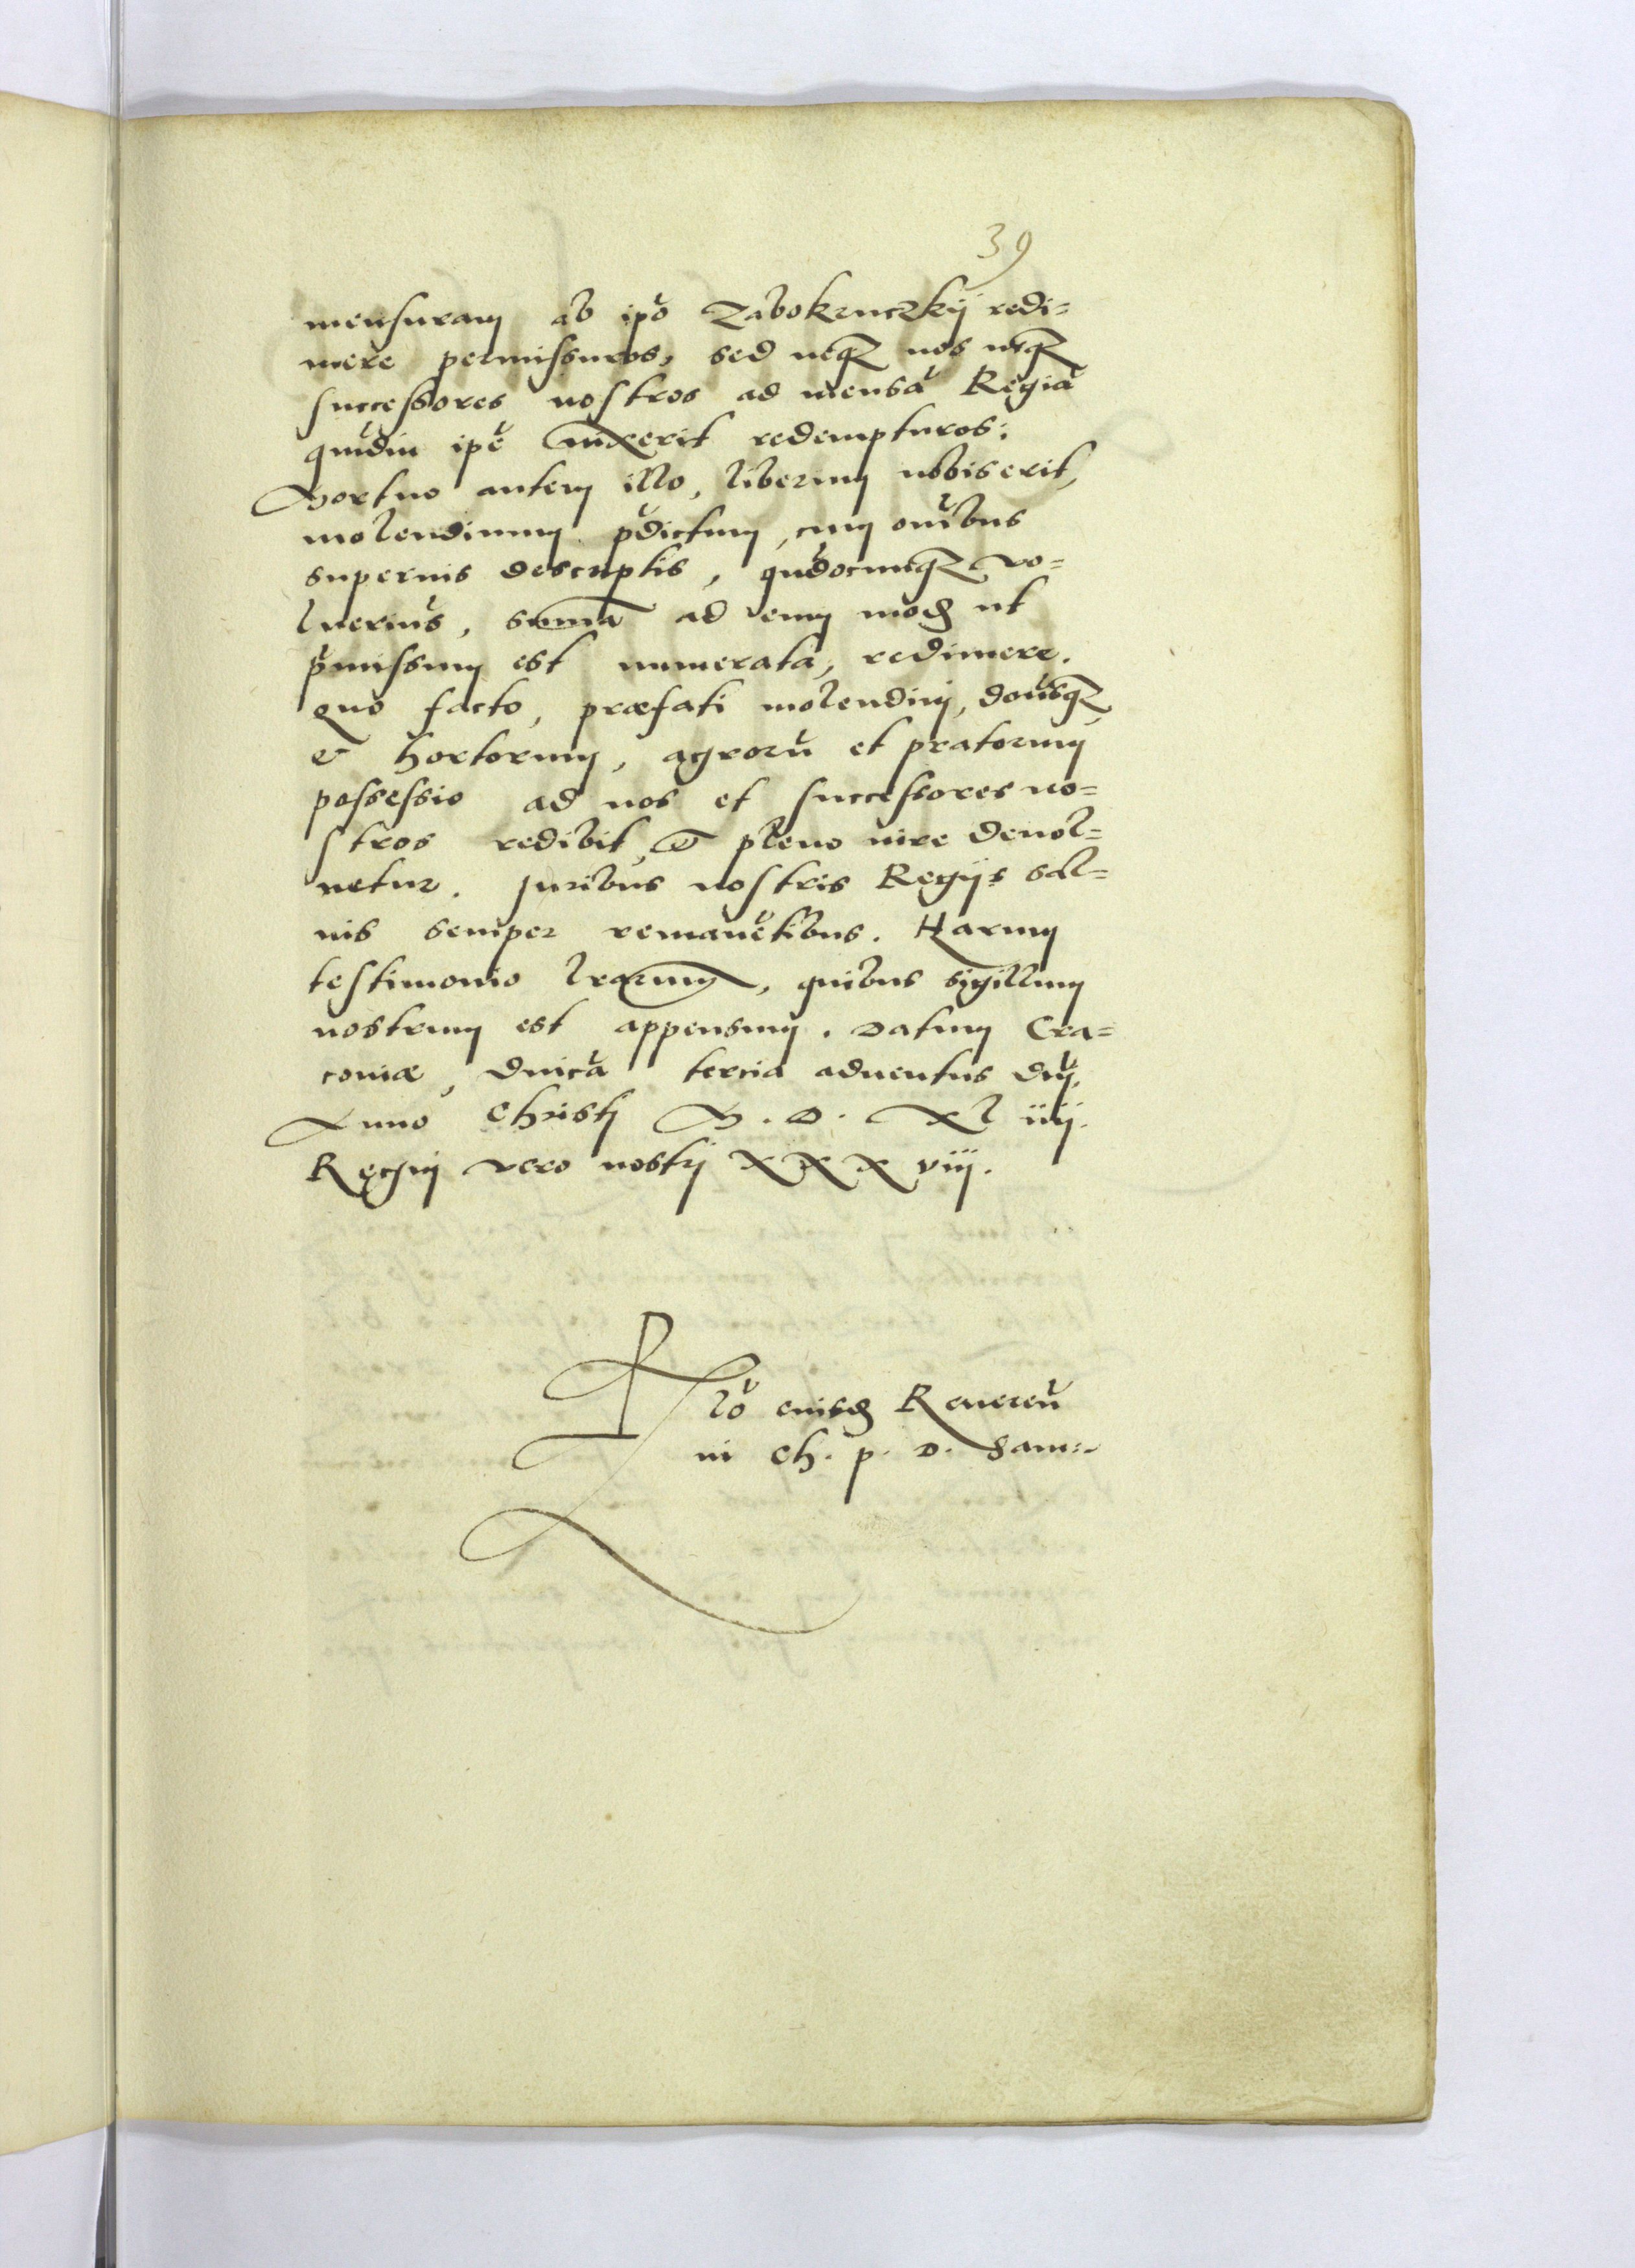 39
mensuram ab ipo Zabokruczkij redi=
mere permissuros, sed neqz nos neqz
successores nostros ad mensā Regiā
qudiu ipe vixerit redempturos:
Mortuo autem illo, liberum nobis erit,
molendinum pdictum, cum omibus
supernis descriptis, qudocumqz vo=
luerius, summa ad eum mod ut
pmissum est numerata, redimere.
quo facto, præfati molendini, domusqz
& hortorum, agrorū et pratorum
possessio ad nos et successores no=
stros redibit, & pleno iure deuol=
uetur. Iuribus nostris Regijs sal=
uis semper remanētibus. Harum
testimonio lrarum, quibus sigillum
nostrum est appensum. Datum Cra=
couiæ, dnica tercia aduentus dnj.
Anno Christj M. D. Xl iiij.
Regnj vero nostrj XXX viij.
Rlo eiusd Reueren
in Ch. p. D. Sam: